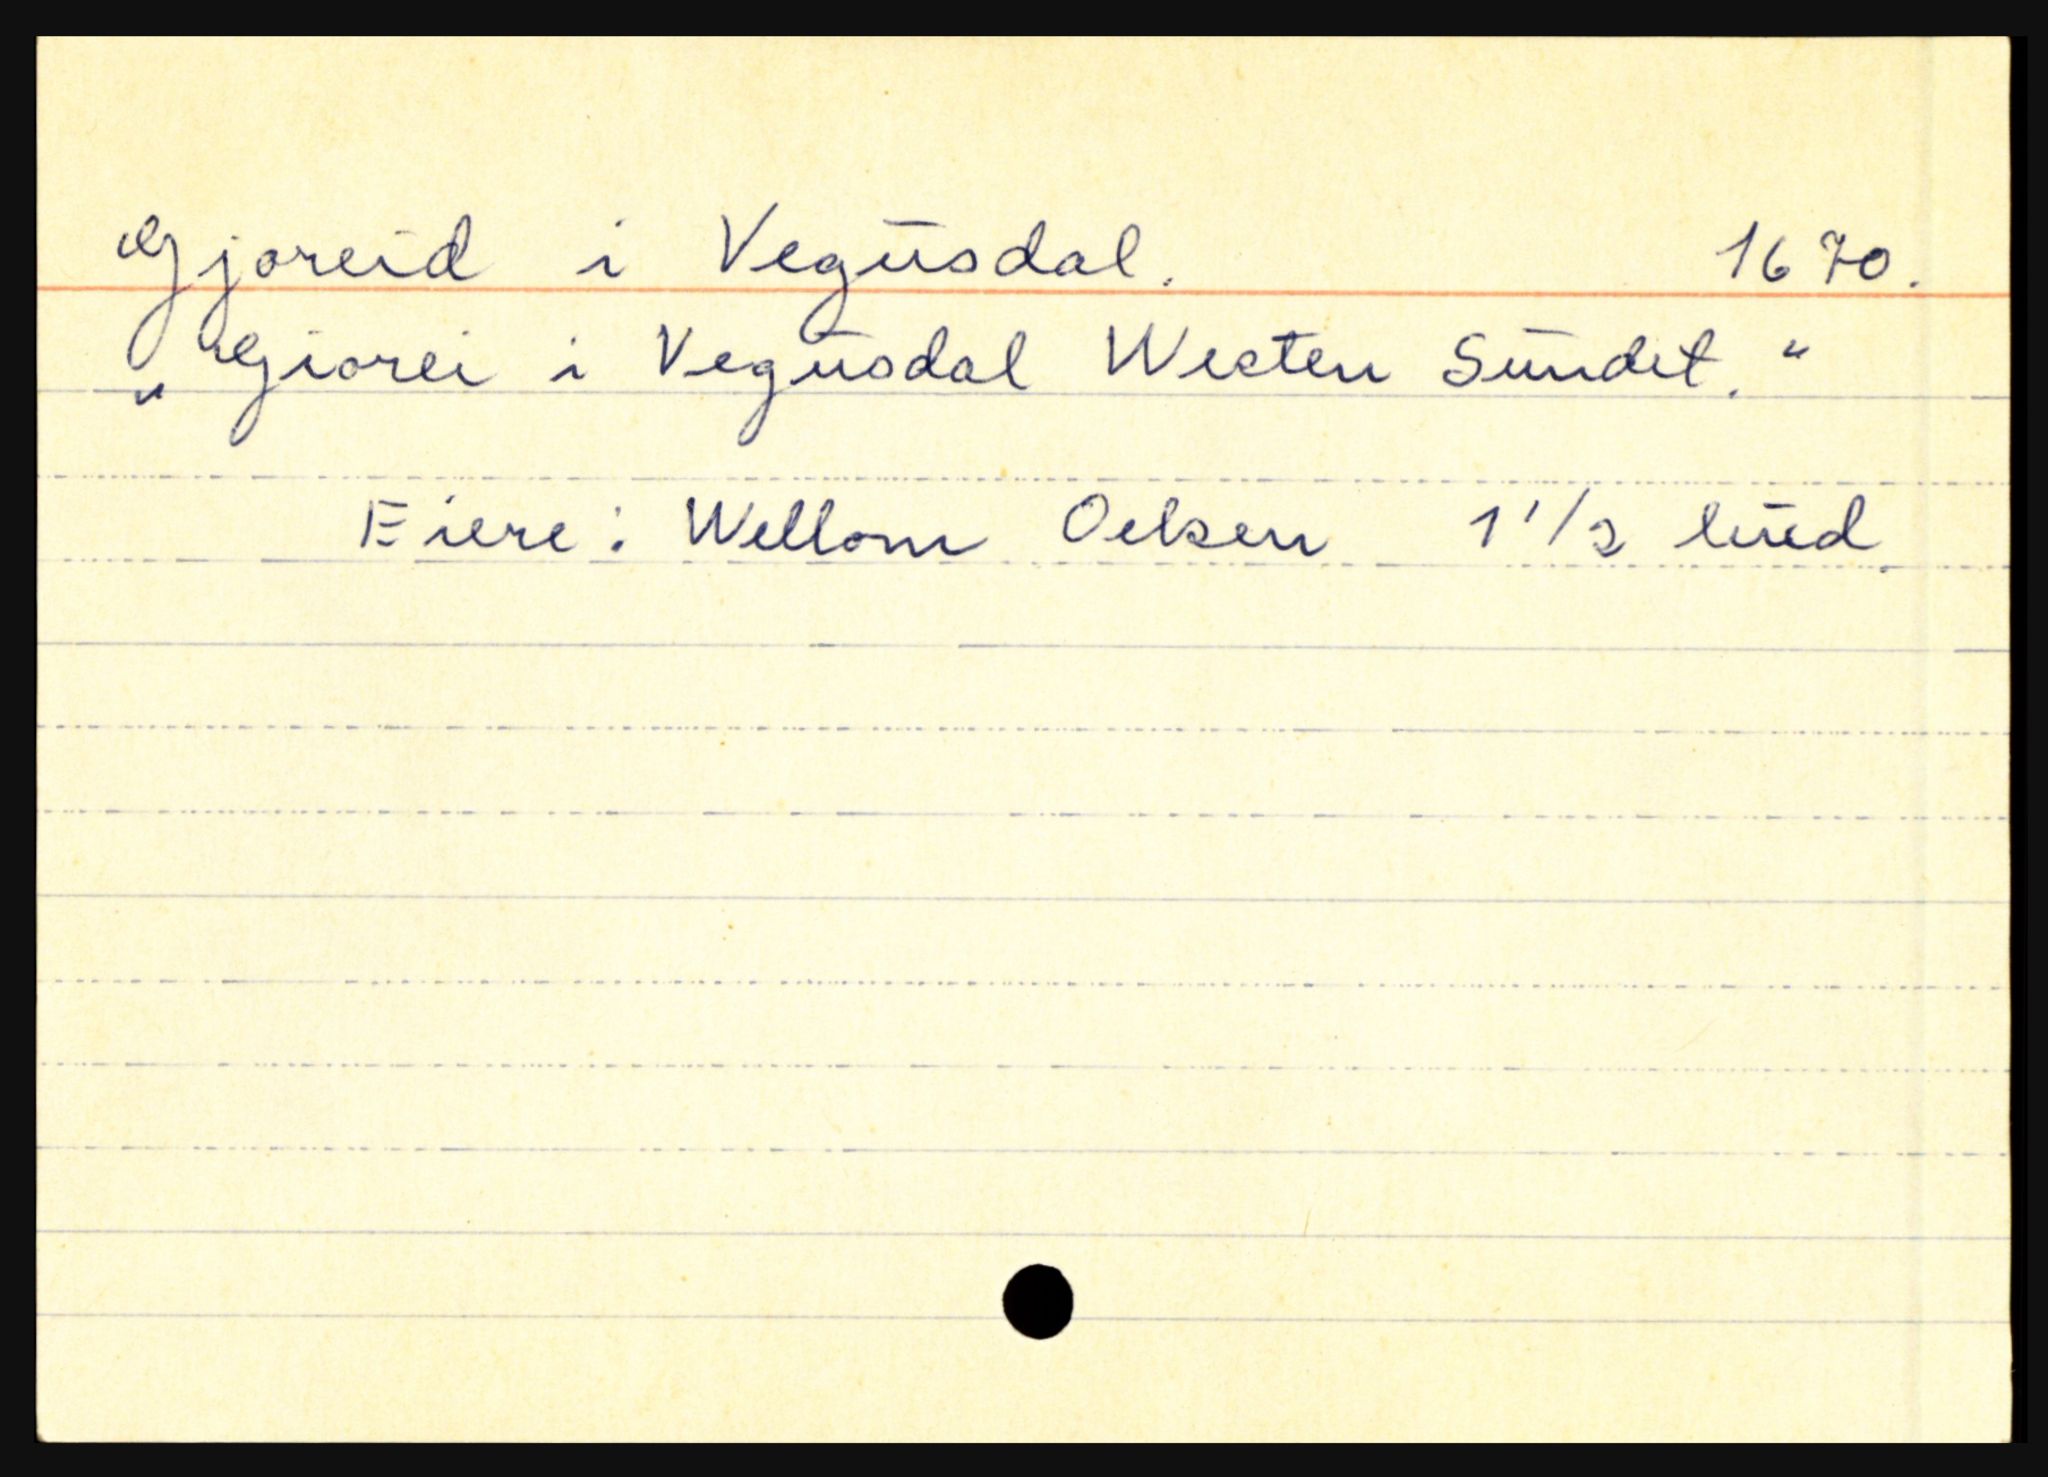 Gjoreid i Vegusdal. 1670.
„Giorei i Vegusdal Westen Sundet."
Eiere: Wellom Oelsen 1 1/2 hud.